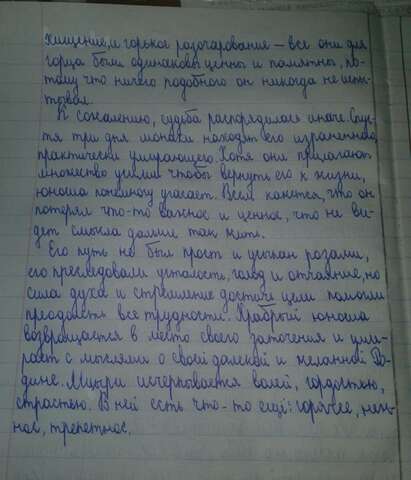 хищение, и горькое разочарование – все они для
горца были одинаковы ценны и памятны, по-
тому что ничего подобного он никогда не испы-
тывал.
К сожалению, судьба распорядилась иначе. Спус-
тя три дня монахи находят его израненного,
практически умирающего. Хотя они прилагают
множество усилий чтобы вернуть его к жизни,
юноша понемногу угасает. Всем кажется, что он
потерял что-то важное и ценное, что не ви-
дит смысла дальше так жить.
Его путь не был прост и усыпан розами,
его преследовали усталость, голод и отчаяние, но
сила духа и стремление достичь цели помогли
преодолеть все трудности. Храбрый юноша
возвращается в место своего заточения и уми-
рает с мыслями о своей далекой и желанной Ро-
дине. Мцыри исчерпывается волей, гордостью,
страстью. В ней есть что-то ещё: горячее, неж-
ное, трепетное.